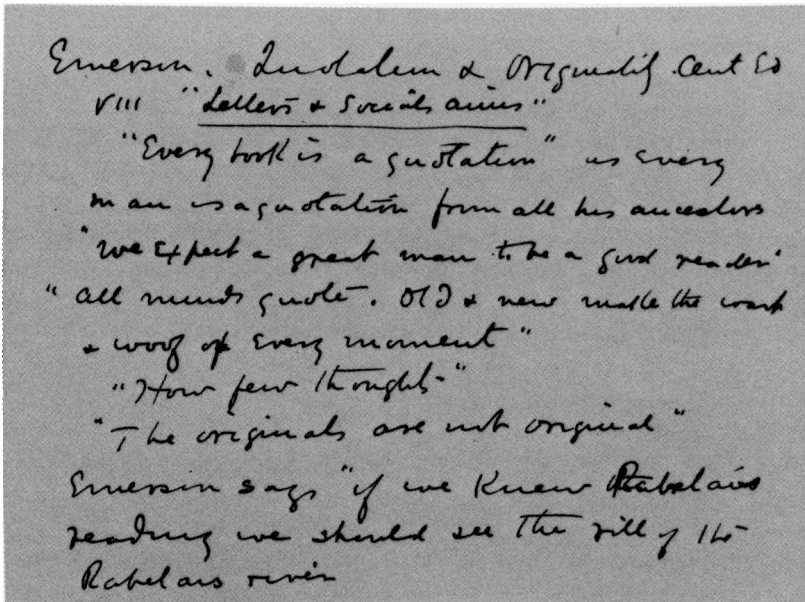 Emerson. Quotation & Originality. Cent Ed
VIII "Letters & Social aims"
"Every book is a quotation" us every
man is a quotation from all his ancestors
"we expect a great man to be a good reader"
"all minds quote. Old & new make the warp
& woof of every moment"
"How few thoughts-"
"The originals are not original"
Emerson says "if we knew Rabelais
reading we should see the rill of the
Rabelais river